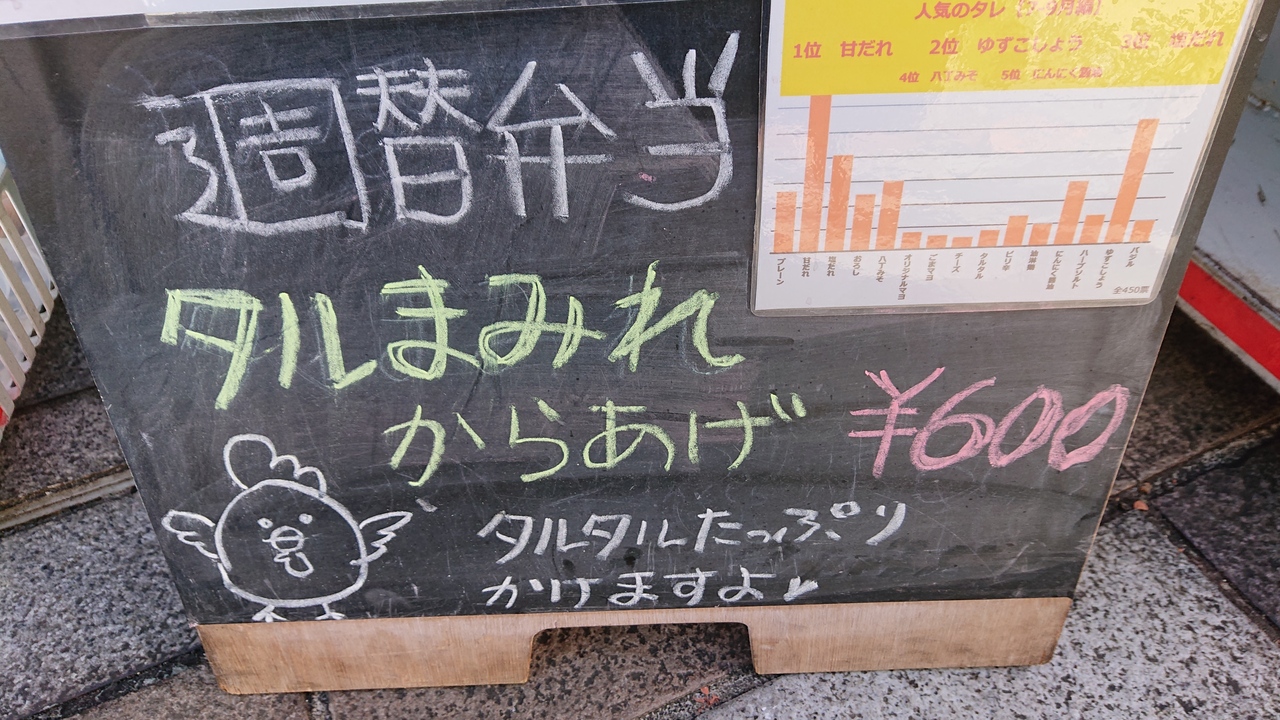 週替弁当
タルまみれ
からあげ ¥600
タルタルたっぷり
かけますよ
人気のタレ
1位 甘だれ 2位 ゆずこしょう 3位 塩だれ
4位 八丁みそ 5位 にんにく醤油
プレーン
甘だれ
塩だれ
おろし
八丁みそ
オリジナルマヨ
ごまマヨ
チーズ
タルタル
ピリ辛
にんにく醤油
ハーブソルト
ゆずこしょう
バジル
全450票